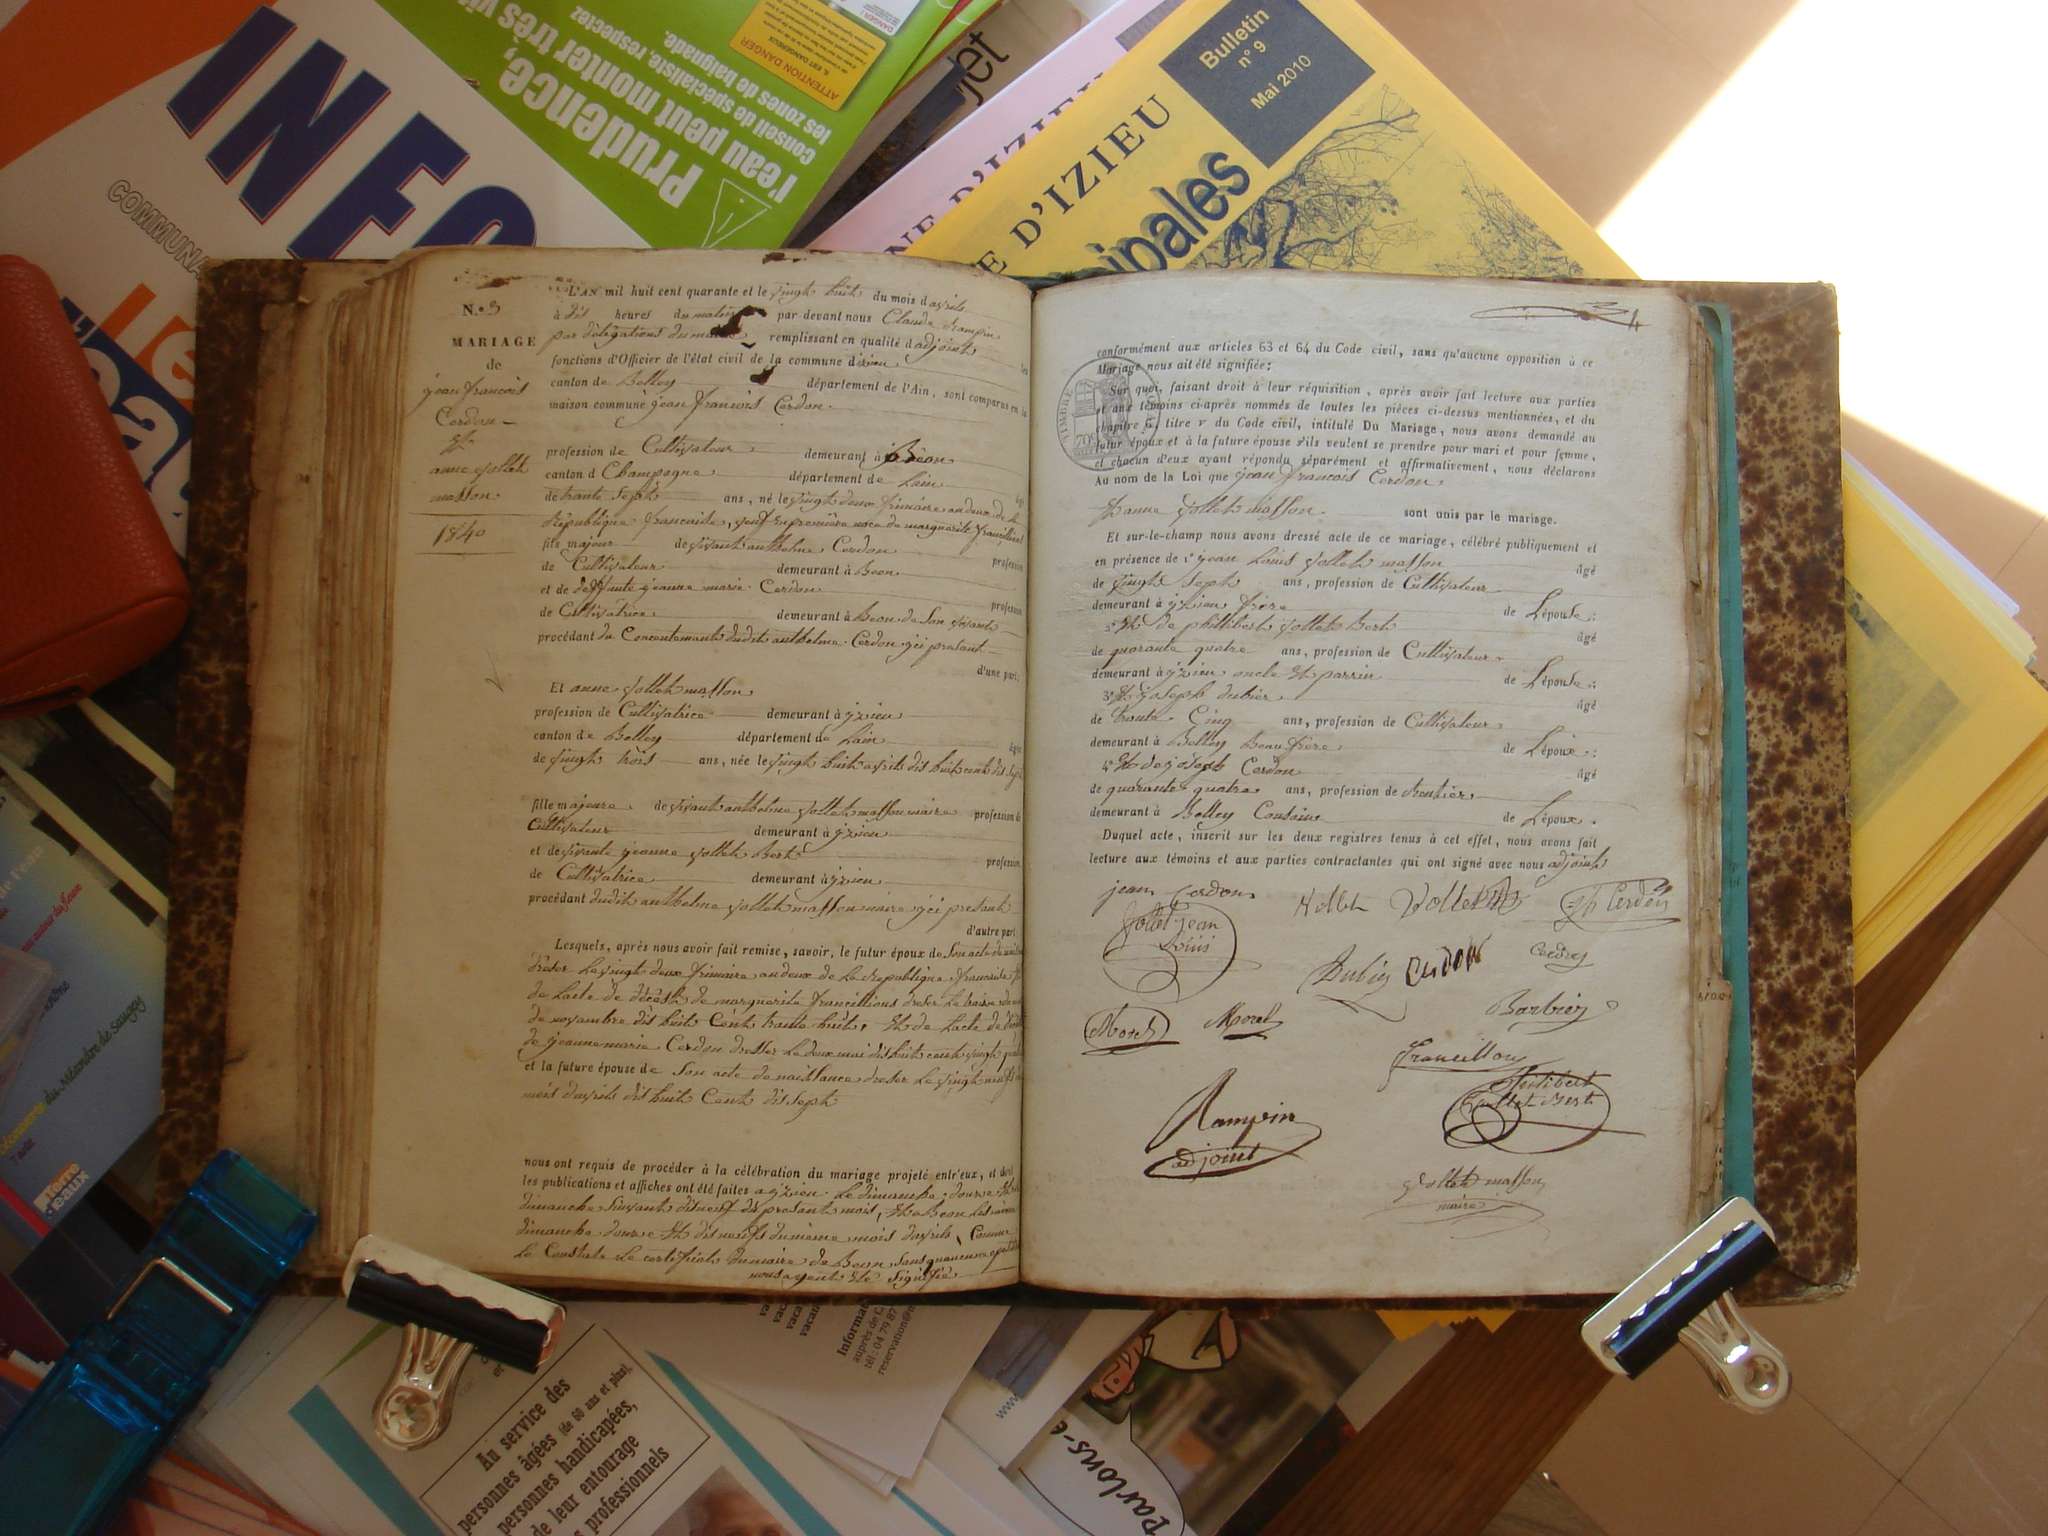 INFO
COMMUNA
Prudence,
l'eau peut monter très vi
conseil de spécialiste, respectez
les zones de baignade.
ATTENTION DANGER
jet
NE D'IZIEU
E D'IZIEU
cipales
Bulletin
n° 9
Mai 2010
N.º 3
MARIAGE
de
jean francois
Cerdon
Et
anne Vollet
masson
1840
L'AN mil huit cent quarante et le vingt huit du mois d'avrils
à dis heures du matin par devant nous Claude Rampin
par délégations du maire remplissant en qualité d'adjoint les
fonctions d'Officier de l'état civil de la commune d'izieu
canton de Belley département de l'Ain, sont comparus en la
maison commune jean francois Cerdon
profession de Cultivateur demeurant à Béon
canton d Champagne département de Lain âgé
de trante Sept ans, né le vingt deux frimaire an deux de la
République francaise, veuf en première noce de marguerite francillions
fils majeur de vivant anthelme Cerdon profession
de Cultivateur demeurant à Beon
et de deffunte jeanne marie Cerdon profession
de Cultivatrice demeurant à Beon de Son vivante
procédant du Concentement dudit anthelme Cerdon ici presant
d'une part;
Et anne Vollet masson
profession de Cultivatrice demeurant à yzieu
canton de Belley département de Lain âgée
de vingt trois ans, née le vingt huit avrils dis huit cent dis Sept
fille majeure de vivant anthelme Vollet masson maire profession de
Cultivateur demeurant à yzieu
et de vivante jeanne Vollet Bert profession
de Cultivatrice demeurant à yzieu
procédant dudit anthelme Vollet masson maire ici presant
d'autre part.
Lesquels, après nous avoir fait remise, savoir, le futur époux de Son acte de
dreser Le vingt deux frimaire an deux de La Republique francaise
de Lacte de décest de marguerite francillions dreser Le
de novembre dis huit Cent trante huit, Et de Lacte de
de jeanne marie Cerdon dresser Le deux mai dis huit cent vingt
et la future épouse de Son acte de naissance dreser Le vingt neuf
mois davrils dis huit Cent dis Sept
nous ont requis de procéder à la célébration du mariage projeté entr'eux, et dont
les publications et affiches ont été faites a yzieu Le dimanche douze Et
dimanche Suivant disneuf du presant mois, Et a Beon Les
dimanche douze Et dis neufs du meme mois davrils, Comme
Le Constate Le certificat du maire de Beon Sans quaucune
nous ayent Ete Signifié
4
conformément aux articles 63 et 64 du Code civil, sans qu'aucune opposition à ce
Mariage nous ait été signifiée;
Sur quoi, faisant droit à leur réquisition, après avoir fait lecture aux parties
et aux témoins ci-après nommés de toutes les pièces ci-dessus mentionnées, et du
chapitre 6, titre v du Code civil, intitulé Du Mariage, nous avons demandé au
futur époux et à la future épouse s'ils veulent se prendre pour mari et pour femme,
et chacun d'eux ayant répondu séparément et affirmativement, nous déclarons
Au nom de la Loi que jean francois Cerdon
Et anne Vollet masson sont unis par le mariage.
Et sur-le-champ nous avons dressé acte de ce mariage, célébré publiquement et
en présence de 1º jean Louis Vollet masson âgé
de vingt Sept ans, profession de Cultivateur
demeurant à yzieu frère de Lépouse;
2º Et de phillibert Vollet Bert âgé
de quarante quatre ans, profession de Cultivateur
demeurant à yzieu oncle Et parrin de Lépouse;
3º Et joseph dubier âgé
de trante Cinq ans, profession de Cultivateur
demeurant à Belley Beau frère de Lépoux;
4º Et de joseph Cerdon âgé
de quarante quatre ans, profession de Rentier
demeurant à Belley Cousine de Lépoux.
Duquel acte, inscrit sur les deux registres tenus à cet effet, nous avons fait
lecture aux témoins et aux parties contractantes qui ont signé avec nous adjoint
TIMBRE
jean Cerdon
Vollet
Jh Cerdon
Volet jean
Louis
Dubier
Cerdon
Morel
Morel
Barbier
francillon
Rampin
adjoint
Philibert
Vollet Bert
Vollet masson
maire
du Méandre du Saugey
Terre
d'eaux
Au service des
personnes âgées (de 60 ans et plus),
personnes handicapées,
de leur entourage
professionnels
vaca
Informat
auprès de C
tél : 04 79 87
reservation@
www.
Parlons-e